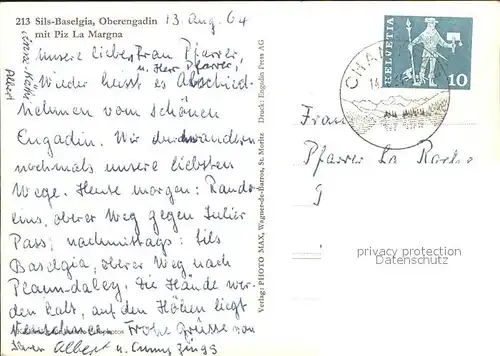 213 Sils-Baselgia, Oberengadin
mit Piz La Margna
13. Aug. 64
Unsere lieben Frau Pfarrer,
u. Herr Pfarrer,
Wieder heisst es Abschied-
nehmen vom schönen
Engadin. Wir durchwandern
nochmals unsere liebsten
Wege. Heute morgen:
eins, oberer Weg gegen Julier
Pass; nachmittags: Sils
Baselgia, oberer Weg nach
Plaun-da-lej. Die Hände wer-
den kalt, auf den Höhen liegt
Neuschnee. Frohe Grüsse von
Ihren Albert u.
Albert
Verlag: PHOTO MAX, Wagner-de-Barros, St. Moritz Druck: Engadin Press AG
HELVETIA
10
CHAM
Frau
Pfarrer
privacy protection
datenschutz